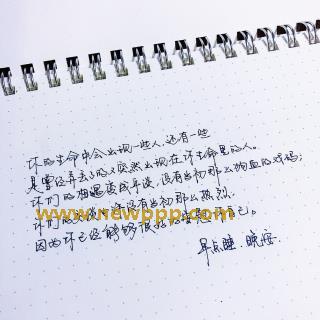 你的生命中会出现一些人,还有一些
是曾经弃去了的又突然出现在你生命里的人。
你们的相遇变成平淡,没有当初那么狗血的戏码;
你们的 没有当初那么热烈.
www.newppp.com
因为你已经能够很好的 自己。
早点睡.晚安.